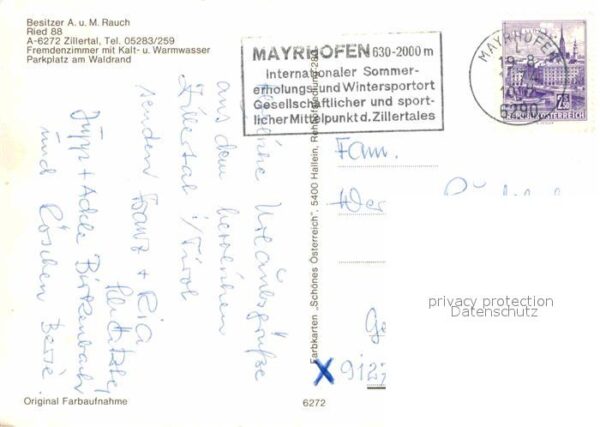 Besitzer A. u. M. Rauch
Ried 88
A-6272 Zillertal, Tel. 05283/259
Fremdenzimmer mit Kalt- u. Warmwasser
Parkplatz am Waldrand
MAYRHOFEN 630-2000 m
Internationaler Sommer-
erholungs- und Wintersportort
Gesellschaftlicher und sport-
licher Mittelpunkt d. Zillertales
MAYRHOFEN
6290
REPUBLIK ÖSTERREICH
Urlaubsgrüße
aus dem herrlichen
Zillertal i/Tirol
senden Franz + Ria
Jupp + Adele Birkenbach
und Röschen
Farbkarten „Schönes Österreich", 5400 Hallein, Rehhofsiedlung
Fam.
privacy protection
Datenschutz
X
Original Farbaufnahme
6272